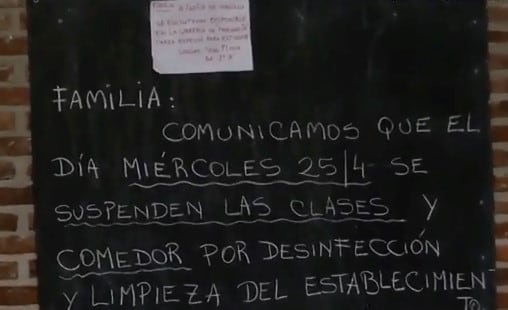 SE ENCUENTRAN DISPONIBLE
EN LA
FAMILIA:
COMUNICAMOS QUE EL
DÍA MIÉRCOLES 25/4 SE
SUSPENDEN LAS CLASES Y
COMEDOR POR DESINFECCIÓN
Y LIMPIEZA DEL ESTABLECIMIEN
TO.